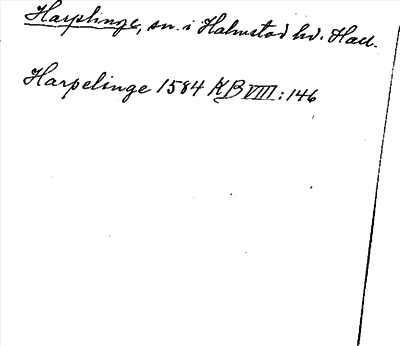 Harplinge, sn. i Halmstad hd. Hall.
Harpelinge 1584 KB VIII:146